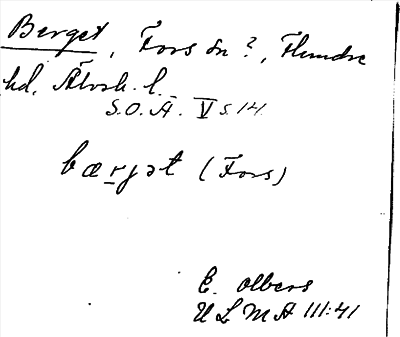 Berget, Fors sn?, Flundre
hd, Älvsb. l.
S.O.Ä. V s. 14.
bærjət (Fors)
E. Olbers
ULMA 111:41